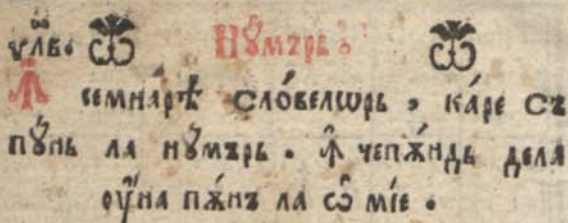 үл҃в. Ѿ Нꙋмъръ Ѿ
Ꙟ семна́рѣ сло́велѡрь , ка́ре съ
пꙋ́нь ла нꙋ́мъръ . Ꙟ чепѫ́ндь дела
ѹ҆́на пѫ́нъ ла ѡ҆ мі́е .